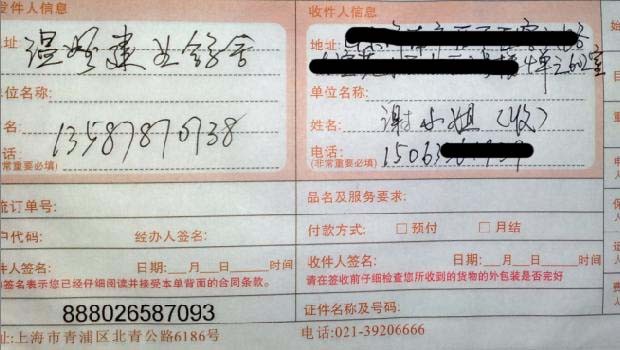 发件人信息
址:
单位名称:
名:
13587870938
话:
(非常重要必填)
收件人信息
地址:
单位名称:
姓名: 谢小姐(收)
电话: 15063
(非常重要必填)
流订单号:
户代码: 经办人签名:
件人签名: 日期:___月___日___时间
签名表示您已经仔细阅读并接受本单背面的合同条款。
888026587093
品名及服务要求:
付款方式: □ 预付 □ 月结
收件人签名: 日期:___月___日___时间
请在签收前仔细检查您所收到的货物的外包装是否完好
证件名称及号码:
址:上海市青浦区北青公路6186号 电话:021-39206666